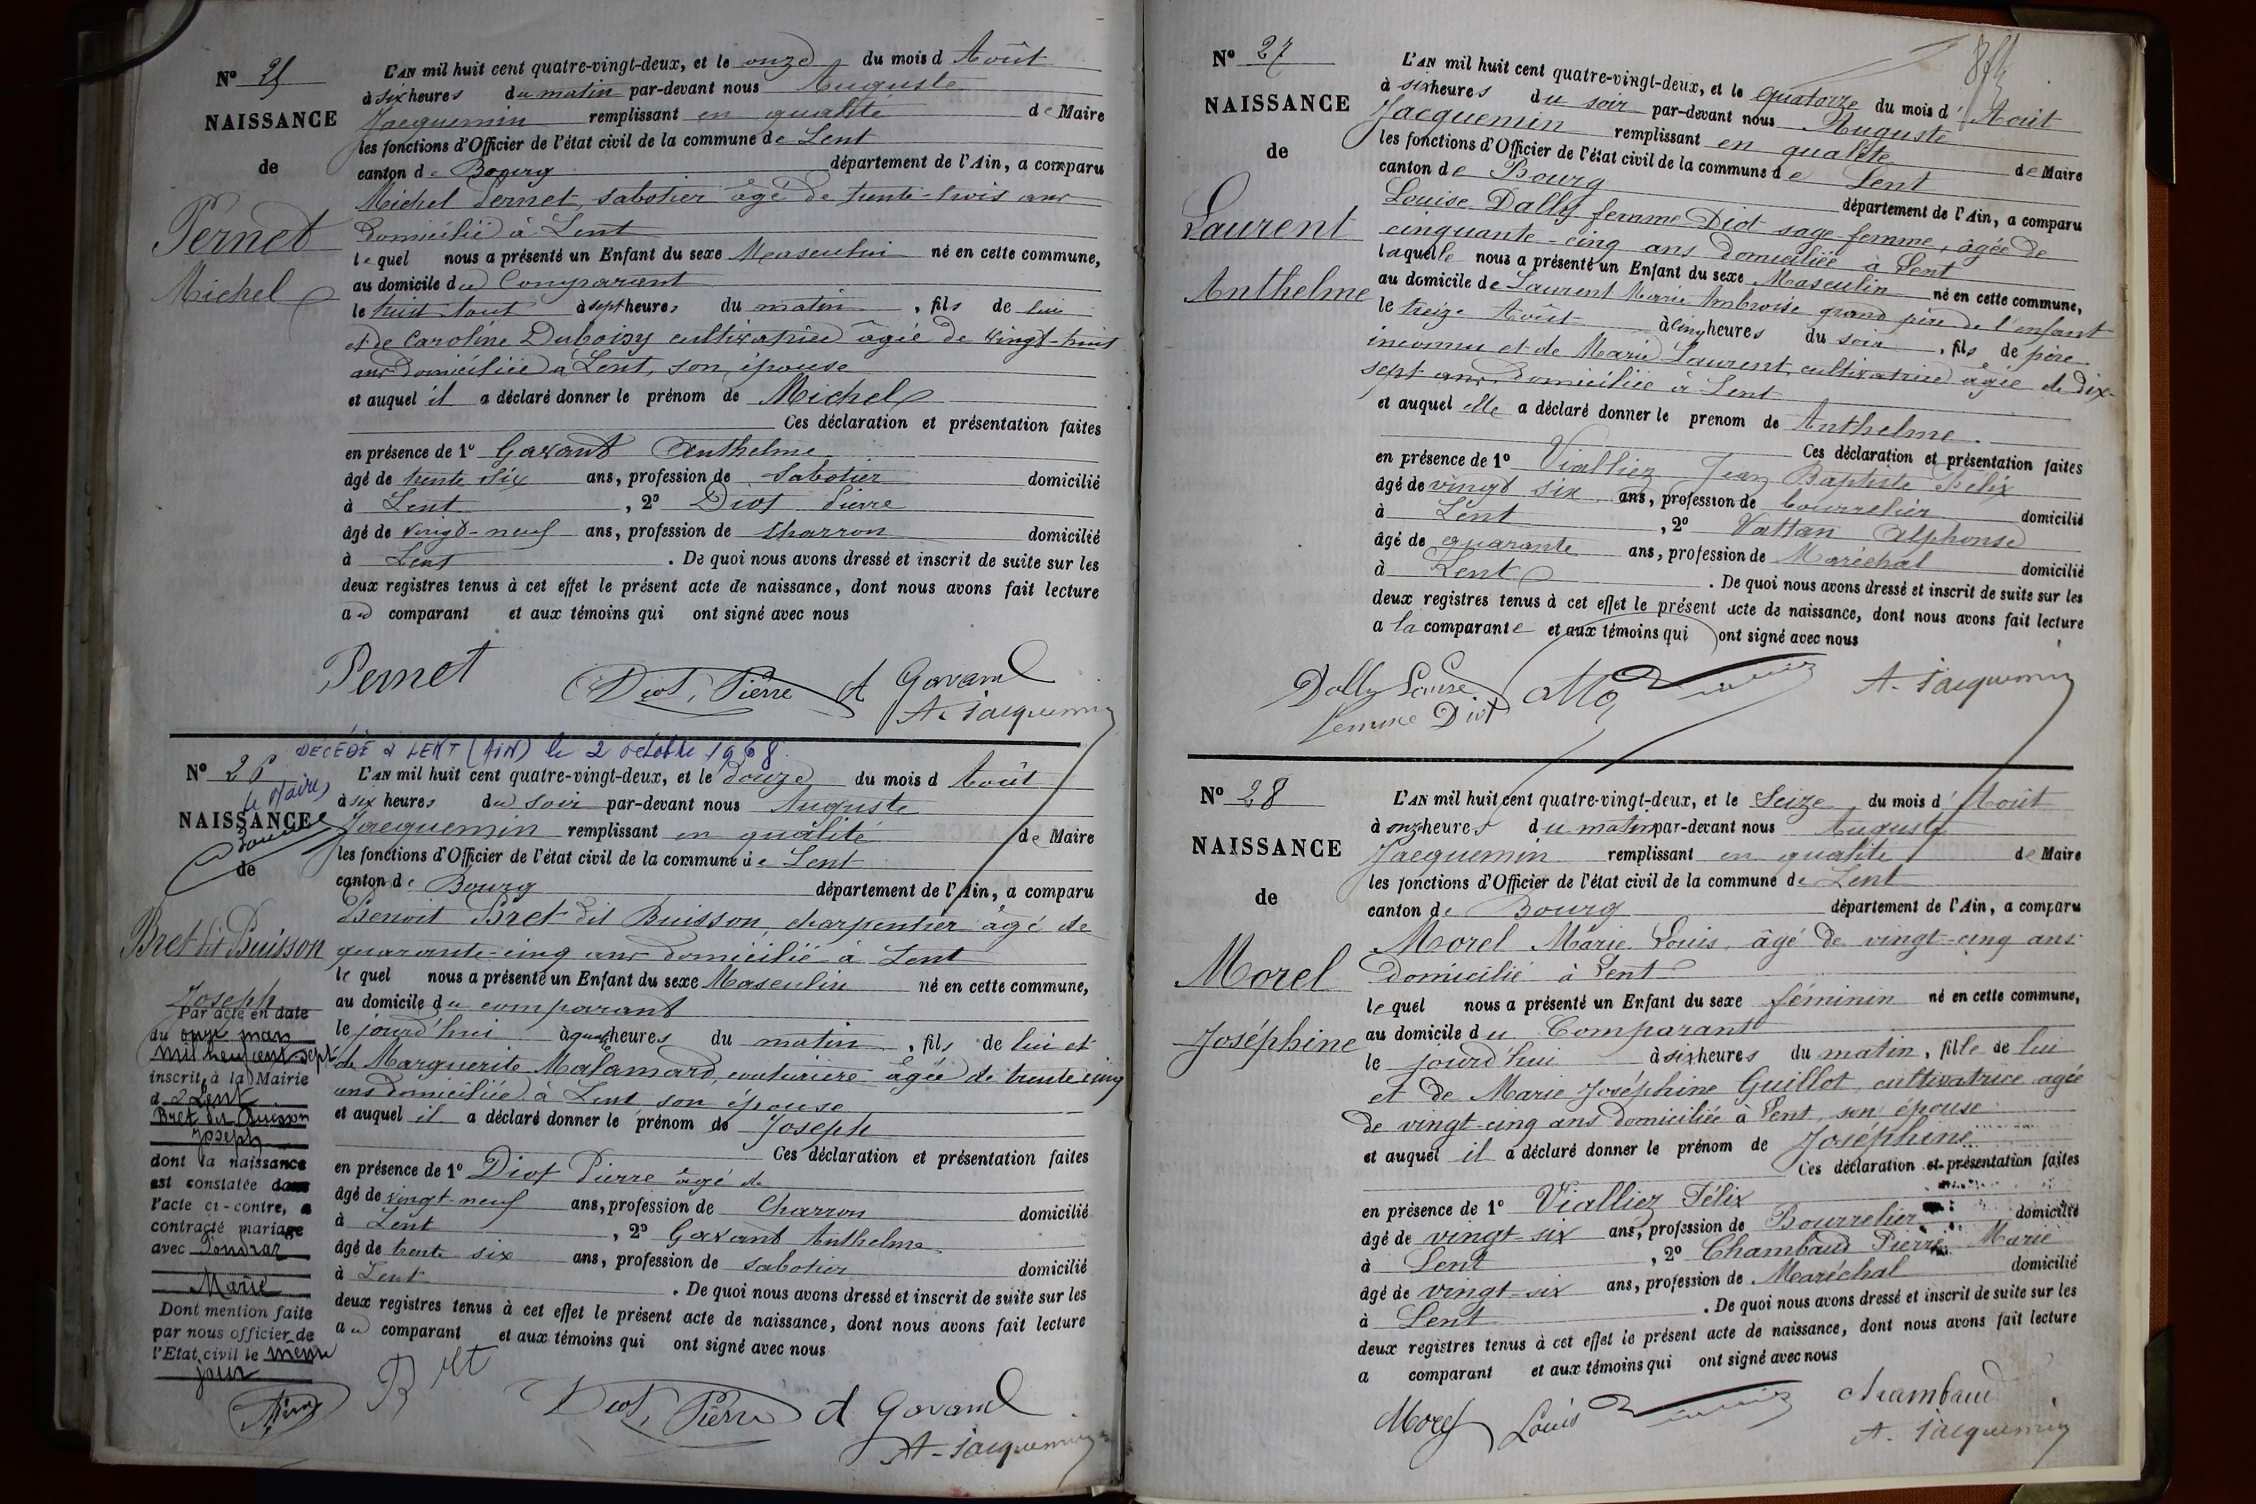 N° 25
NAISSANCE
de
Pernet
Michel
L'AN mil huit cent quatre-vingt-deux, et le onze du mois d Août
à six heures du matin par-devant nous Auguste
Jacquemin remplissant en qualité de Maire
les fonctions d'Officier de l'état civil de la commune de Lent
canton de Bourg département de l'Ain, a comparu
Michel Pernet, sabotier âgé de trente-trois ans
domicilié à Lent
lequel nous a présenté un Enfant du sexe Masculin né en cette commune,
au domicile du Comparant
le huit Aout à sept heures du matin, fils de lui
et de Caroline Duboisy cultivatrice âgée de vingt-huit
ans domiciliée à Lent, son épouse
et auquel il a déclaré donner le prénom de Michel
Ces déclaration et présentation faites
en présence de 1° Gavand Anthelme
âgé de trente six ans, profession de Sabotier domicilié
à Lent, 2° Diot Pierre
âgé de vingt-neuf ans, profession de charron domicilié
à Lent. De quoi nous avons dressé et inscrit de suite sur les
deux registres tenus à cet effet le présent acte de naissance, dont nous avons fait lecture
au comparant et aux témoins qui ont signé avec nous
Pernet Diot, Pierre A Gavand
A. Jacquemin
DÉCÉDÉ à LENT (AIN) le 2 octobre 1968.
Le Maire,
N° 26
NAISSANCE
de
Bret dit Buisson
Joseph
Par acte en date
du onze mars
mil neuf cent sept
inscrit à la Mairie
d e Lent
Bret dit Buisson
Joseph
dont la naissance
est constatée dans
l'acte ci-contre, a
contracté mariage
avec
Marie
Dont mention faite
par nous officier de
l'Etat civil le même
jour
L'AN mil huit cent quatre-vingt-deux, et le douze du mois d Août
à six heures du soir par-devant nous Auguste
Jacquemin remplissant en qualité de Maire
les fonctions d'Officier de l'état civil de la commune de Lent
canton de Bourg département de l'Ain, a comparu
Benoit Bret dit Buisson, charpentier âgé de
quarante-cinq ans domicilié à Lent
lequel nous a présenté un Enfant du sexe Masculin né en cette commune,
au domicile du comparant
le jourd'hui à quatre heures du matin, fils de lui et
de Marguerite Malamard, couturière âgée de trente cinq
ans domiciliée à Lent son épouse
et auquel il a déclaré donner le prénom de Joseph
Ces déclaration et présentation faites
en présence de 1° Diot Pierre âgé de
âgé de vingt-neuf ans, profession de Charron domicilié
à Lent, 2° Gavand Anthelme
âgé de trente six ans, profession de sabotier domicilié
à Lent. De quoi nous avons dressé et inscrit de suite sur les
deux registres tenus à cet effet le présent acte de naissance, dont nous avons fait lecture
au comparant et aux témoins qui ont signé avec nous
Bret
Diot, Pierre A Gavand
A. Jacquemin
N° 27
NAISSANCE
de
Laurent
Anthelme
L'AN mil huit cent quatre-vingt-deux, et le quatorze du mois d'Août
à six heures du soir par-devant nous Auguste
Jacquemin remplissant en qualité de Maire
les fonctions d'Officier de l'état civil de la commune de Lent
canton de Bourg département de l'Ain, a comparu
Louise Dally femme Diot sage-femme, âgée de
cinquante-cinq ans domiciliée à Lent
laquelle nous a présenté un Enfant du sexe Masculin né en cette commune,
au domicile de Laurent Marie Ambroise grand père de l'enfant
le treize Août à cinq heures du soir, fils de père
inconnu et de Marie Laurent, cultivatrice âgée de dix-
sept ans domiciliée à Lent
et auquel elle a déclaré donner le prenom de Anthelme.
Ces déclaration et présentation faites
en présence de 1° Vialliez Jean Baptiste Félix
âgé de vingt six ans, profession de bourrelier domicilié
à Lent, 2° Vattan Alphonse
âgé de quarante ans, profession de Maréchal domicilié
à Lent. De quoi nous avons dressé et inscrit de suite sur les
deux registres tenus à cet effet le présent acte de naissance, dont nous avons fait lecture
a la comparante et aux témoins qui ont signé avec nous
Dally Louise
femme Diot
A. Jacquemin
N° 28
NAISSANCE
de
Morel
Joséphine
L'AN mil huit cent quatre-vingt-deux, et le Seize du mois d'Août
à onze heures du matin par-devant nous Auguste
Jacquemin remplissant en qualité de Maire
les fonctions d'Officier de l'état civil de la commune de Lent
canton de Bourg département de l'Ain, a comparu
Morel Marie Louis, âgé de vingt-cinq ans
domicilié à Lent
lequel nous a présenté un Enfant du sexe féminin né en cette commune,
au domicile du Comparant
le jourd'hui à six heures du matin, fille de lui
et de Marie Joséphine Guillot cultivatrice agée
de vingt-cinq ans domiciliée à Lent, son épouse
et auquel il a déclaré donner le prénom de Joséphine
Ces déclaration et présentation faites
en présence de 1° Vialliez Félix
âgé de vingt-six ans, profession de Bourrelier domicilié
à Lent, 2° Chambaud Pierre Marie
âgé de vingt-six ans, profession de Maréchal domicilié
à Lent. De quoi nous avons dressé et inscrit de suite sur les
deux registres tenus à cet effet le présent acte de naissance, dont nous avons fait lecture
a comparant et aux témoins qui ont signé avec nous
Morel Louis Chambaud
A. Jacquemin